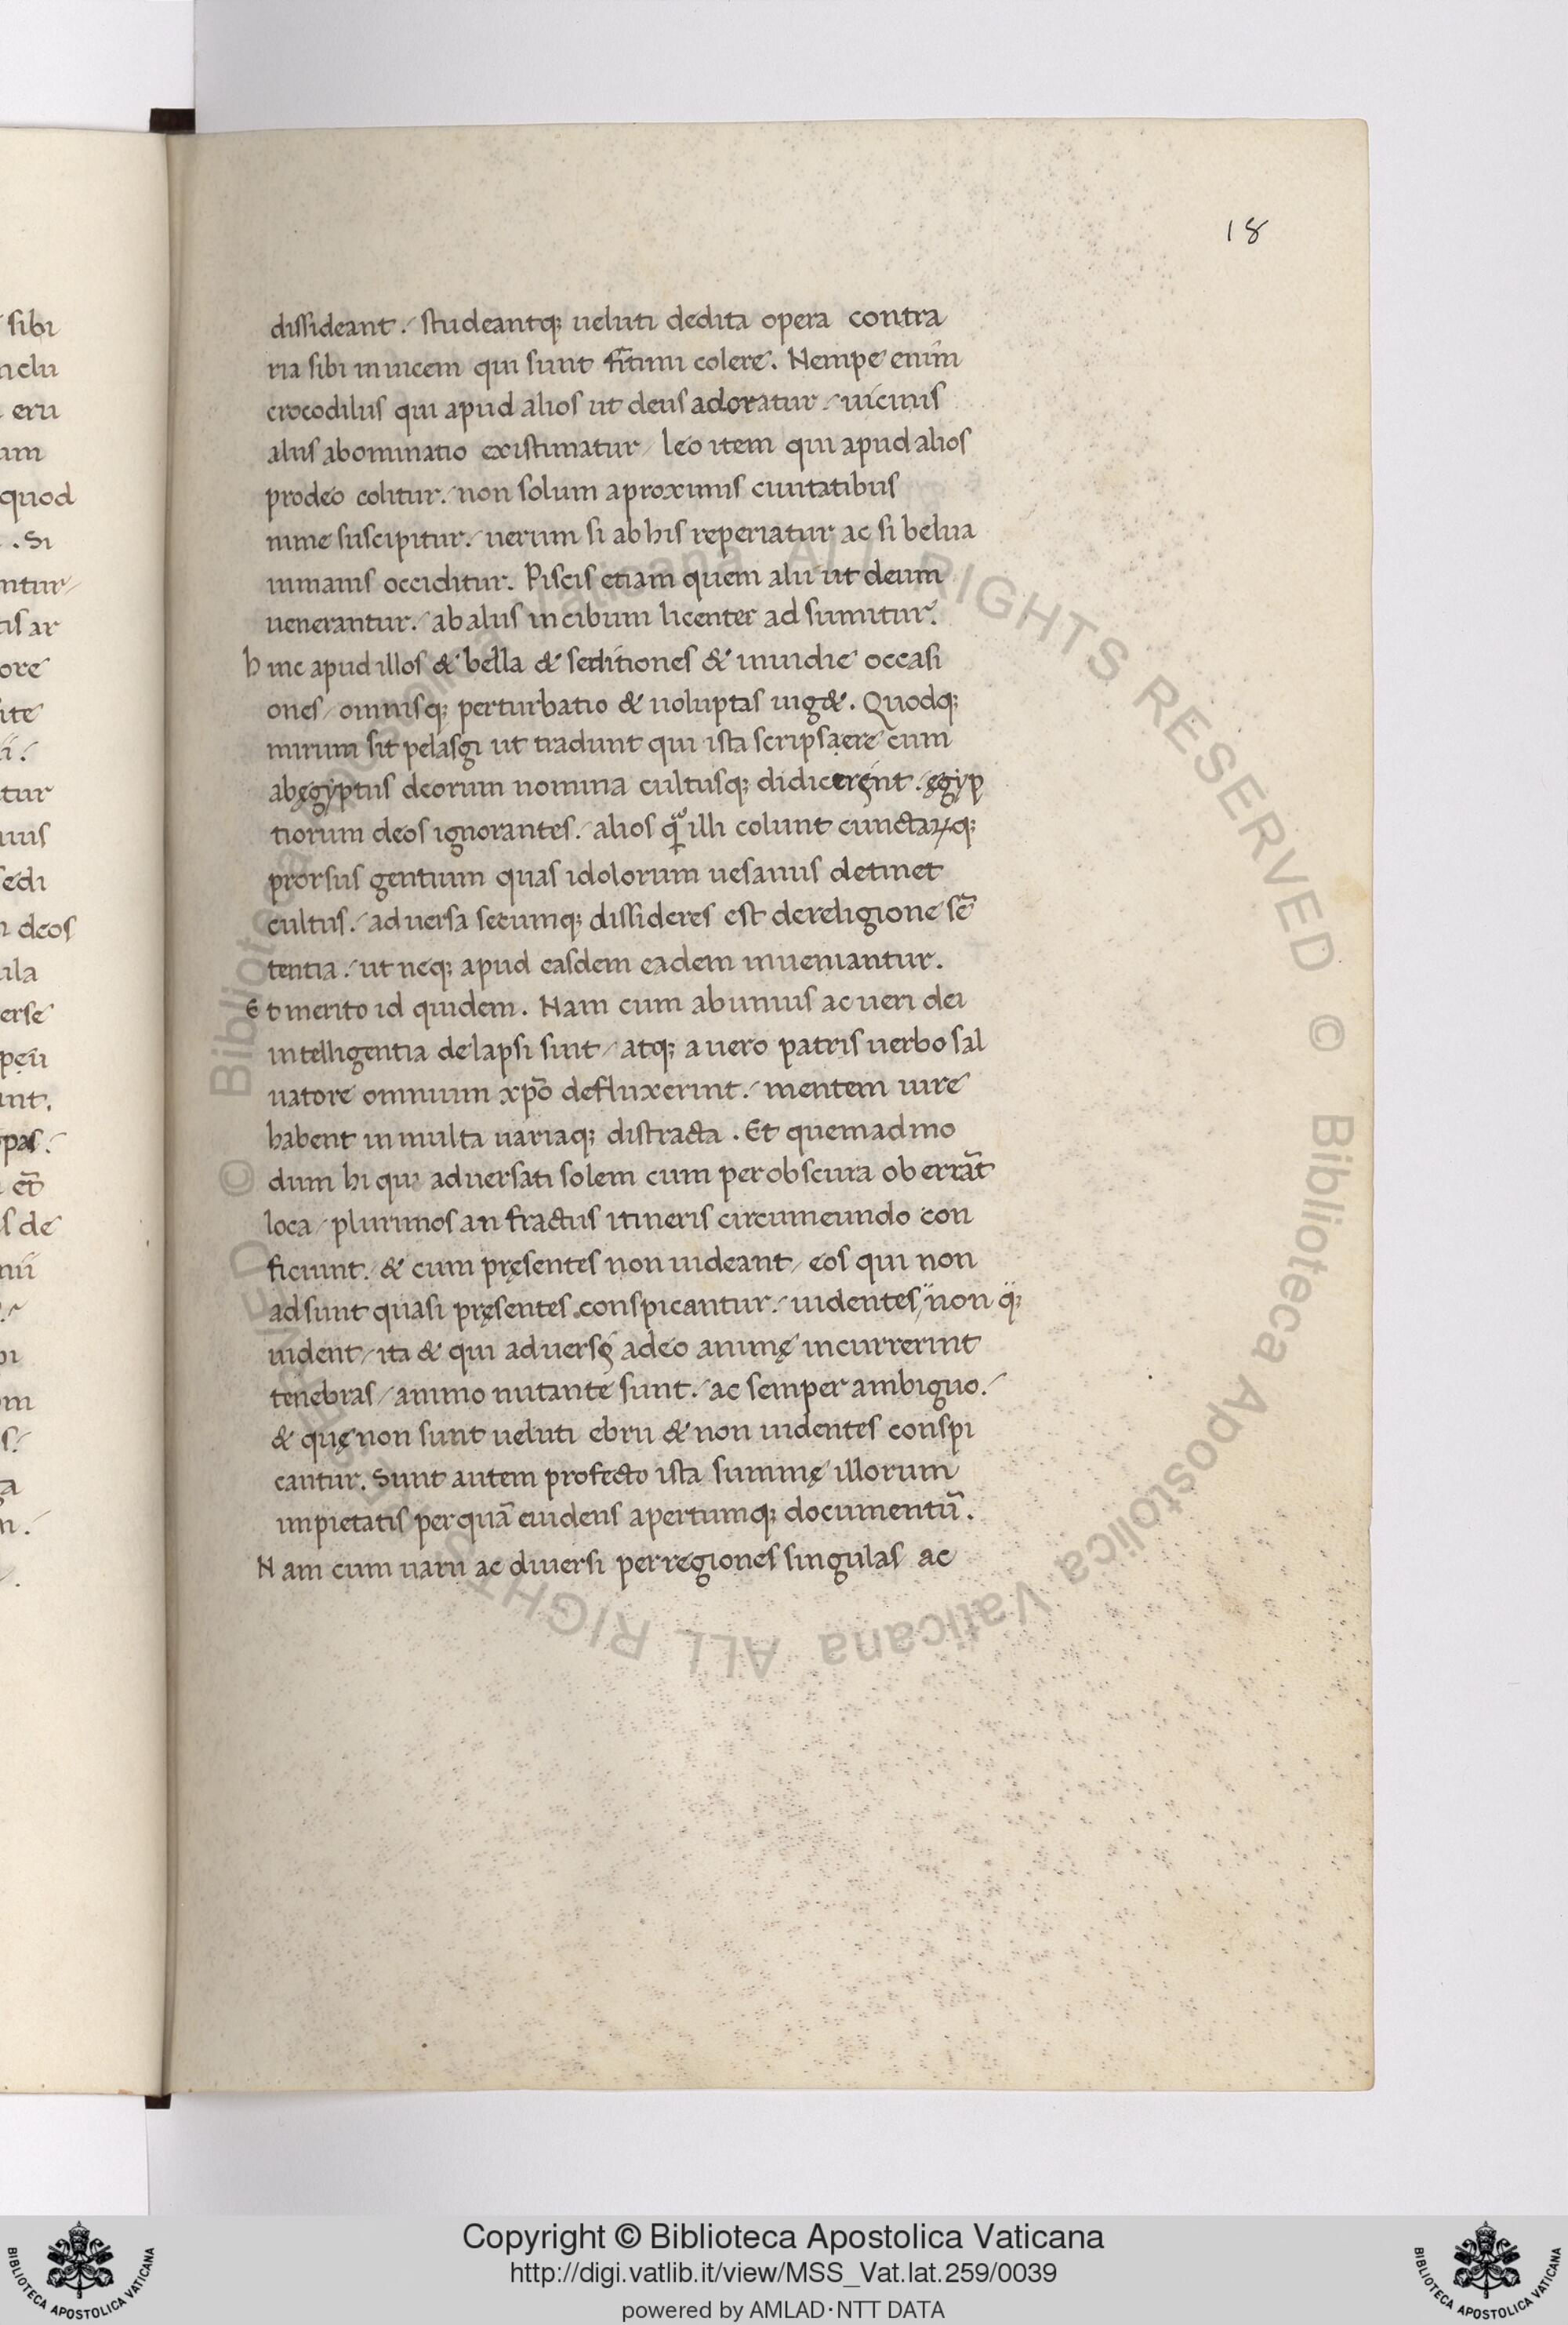 18
dissideant. studeantq; ueluti dedita opera contra
ria sibi inuicem qui sunt fitimi colere. Nempe enim
crocodilus qui apud alios ut deus adoratur uicinis
aliis abominatio existimatur leo item qui apud alios
prodeo colitur. non solum aproximis ciuitatibus
nime suscipitur. uerum si ab his reperiatur ac si belua
inmanis occiditur. Piscis etiam quem alii ut deum
uenerantur. ab aliis in cibum licenter ad sumitur.
hinc apud illos & bella & seditiones & inuidie occasi
ones omnisq; perturbatio & uoluptas uig&. Quodq;
mirum sit pelasgi ut tradunt qui ista scripsaere cum
abęgyptus deorum nomina cultusq; didicerent. ęgyp
tiorum deos ignorantes. alios illi colunt cunctaꝝq;
prorsus gentium quas idolorum uesanus detinet
cultus. aduersa secumq; dissideres est dereligione sē
tentia. ut neq; apud easdem eadem inueniantur.
Et merito id quidem. Nam cum abunius ac ueri dei
intelligentia delapsi sint atq; a uero patris uerbo sal
uatore omnium xp̄o defluxerint. mentem iure
habent in multa uariaq; distracta. Et quemadmo
dum hi qui aduersati solem cum perobscura oberrāt
loca plurimos anfractus itineris circumeundo con
ficiunt. & cum pręsentes non uideant eos qui non
adsunt quasi pręsentes conspicantur. uidentes non q;
uident ita & qui aduersę adeo animę incurrerint
tenebras animo nutante sunt. ac semper ambiguo.
& quę non sunt ueluti ebrii & non uidentes conspi
cantur. Sunt autem profecto ista summę illorum
impietatis perquā euidens apertumq; documentū.
Nam cum uarii ac diuersi perregiones singulas ac
sibi
nclu
eru
am
quod
. Si
ntur
tis ar
ore
ite
tur
uus
sedi
deos
ula
erse
peii
unt.
pas.
et̄
s de
nii
m
© Biblioteca Apostolica Vaticana ALL RIGHTS RESERVED © Biblioteca Apostolica Vaticana ALL RIGHTS RESERVED
Copyright © Biblioteca Apostolica Vaticana
http://digi.vatlib.it/view/MSS_Vat.lat.259/0039
powered by AMLAD·NTT DATA
BIBLIOTECA APOSTOLICA VATICANA
BIBLIOTECA APOSTOLICA VATICANA